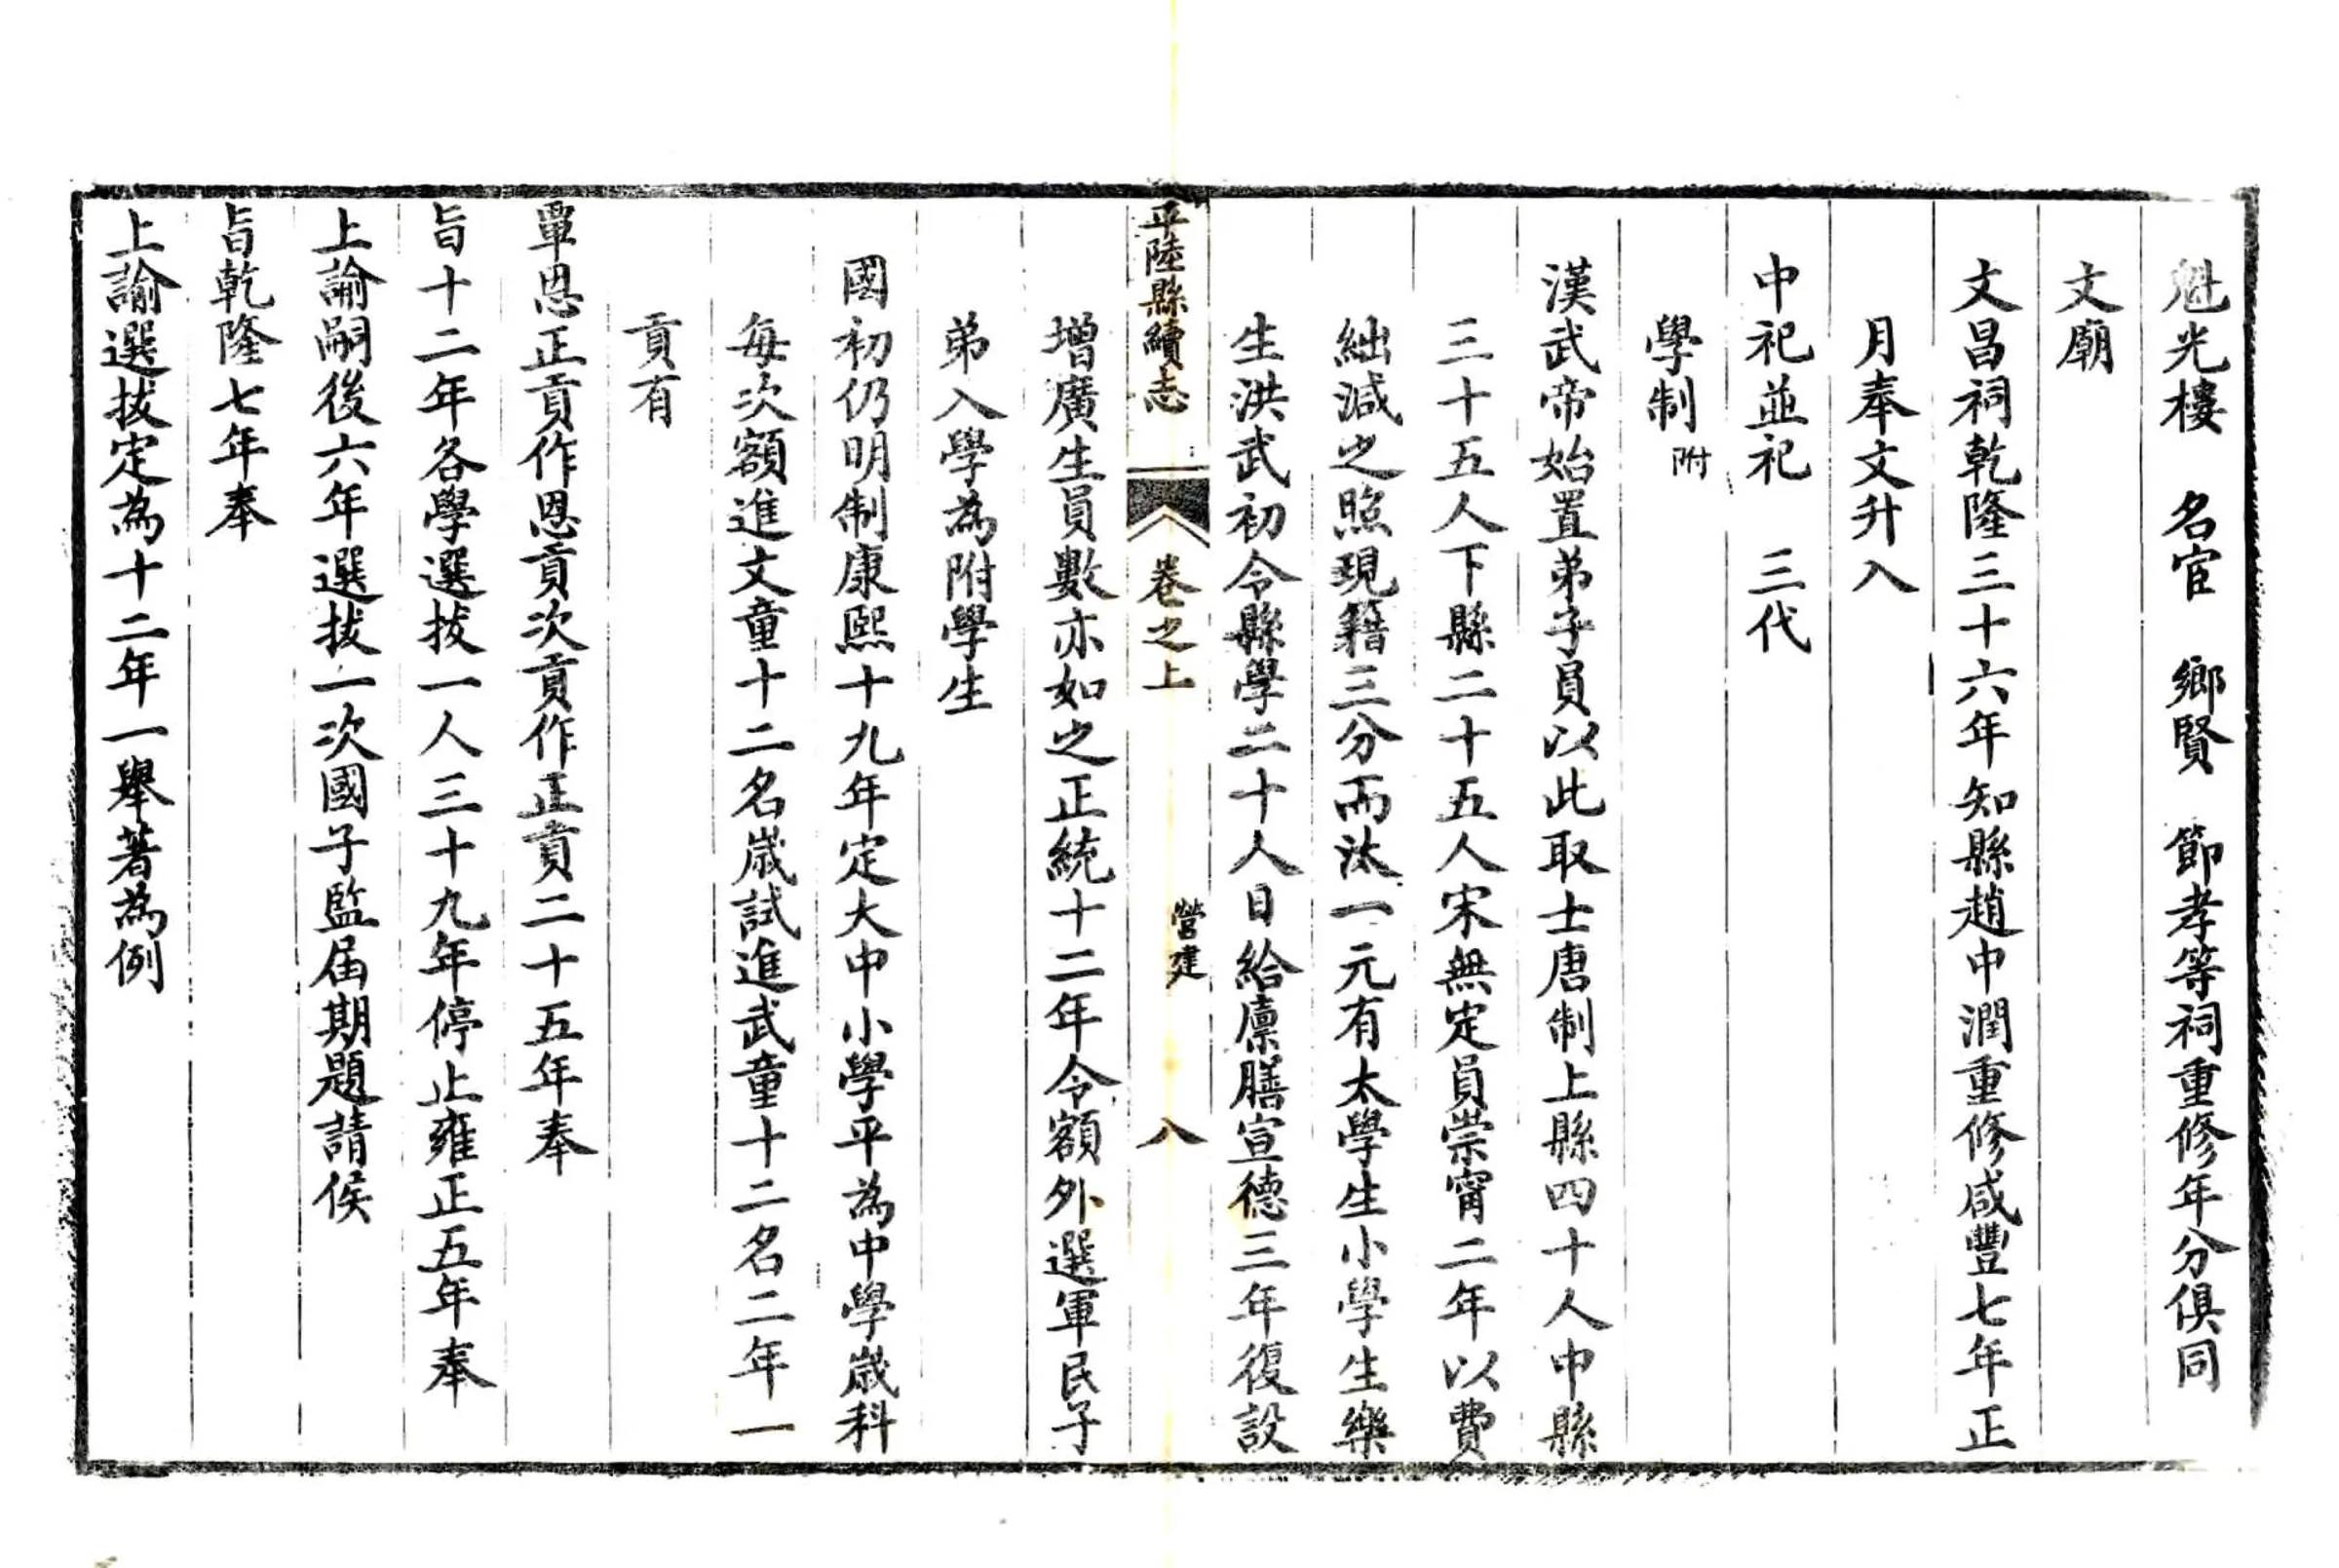 魁光樓　名宦　鄉賢　節孝等祠重修年分俱同
文廟
文昌祠乾隆三十六年知縣趙中潤重修咸豐七年正
月奉文升入
中祀並祀　三代
學制附
漢武帝始置弟子員以此取士唐制上縣四十人中縣
三十五人下縣二十五人宋無定員崇甯二年以費
絀減之照現籍三分而汰一元有太學生小學生樂
生洪武初令縣學二十人日給廩膳宣德三年復設
平陸縣續志　卷之上　營建　八
增廣生員數亦如之正統十二年令額外選軍民子
弟入學為附學生
國初仍明制康熙十九年定大中小學平為中學歲科
每次額進文童十二名歲試進武童十二名二年一
貢有
覃恩正貢作恩貢次貢作正貢二十五年奉
旨十二年各學選拔一人三十九年停止雍正五年奉
上諭嗣後六年選拔一次國子監届期題請俟
旨乾隆七年奉
上諭選拔定為十二年一舉著為例